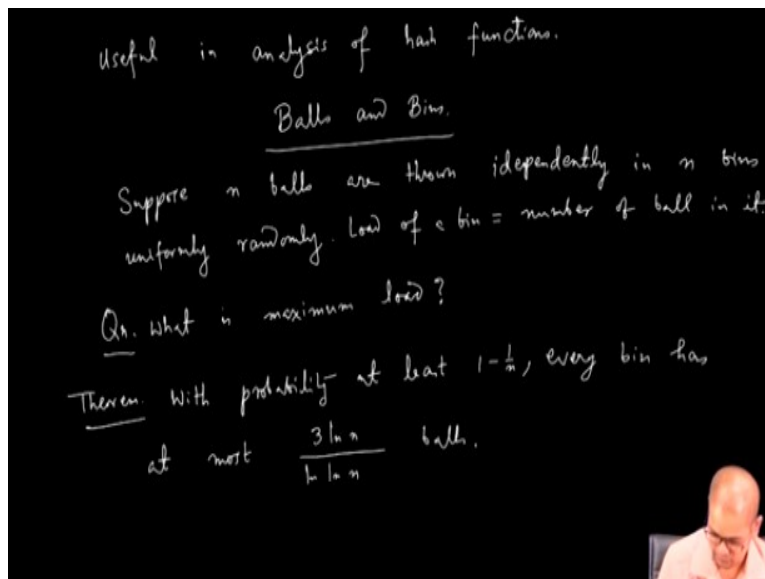 Useful in analysis of hash functions.
Balls and Bins.
Suppose n balls are thrown idependently in n bins
uniformly randomly. Load of a bin = number of ball in it.
Qn. What is maximum load?
Theorem. With probability at least 1 - 1/n, every bin has
at most (3 ln n)/(ln ln n) balls.